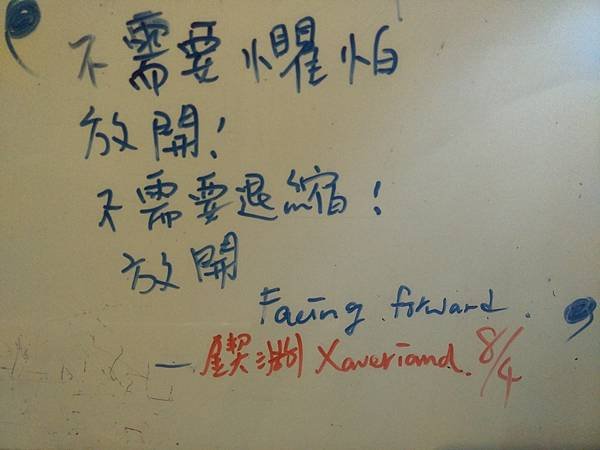 不需要懼怕
放開!
不需要退縮!
放開
Facing forward.
Xaveriand. 8/4